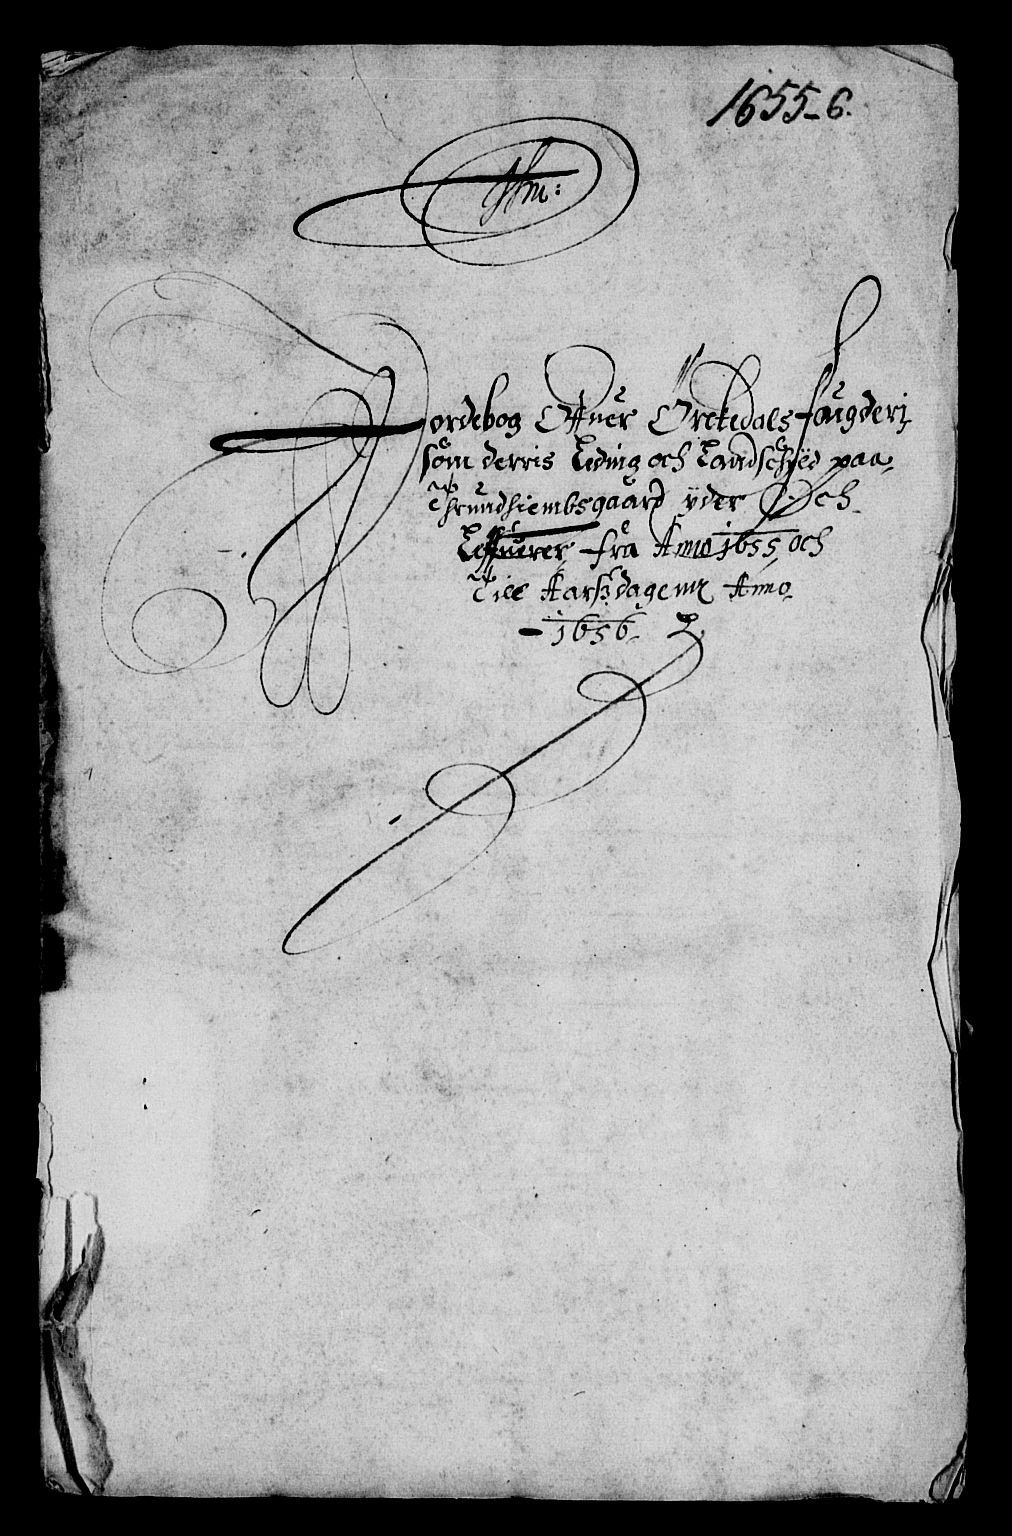 1655-6.
Jordebog Offuer Orckedals fougderj
som derris Leding och Landschyld paa
Thrundhiembsgaard yder Och
Leffuerer fra Anno 1655 och
Till Aarszdagenn Anno
1656